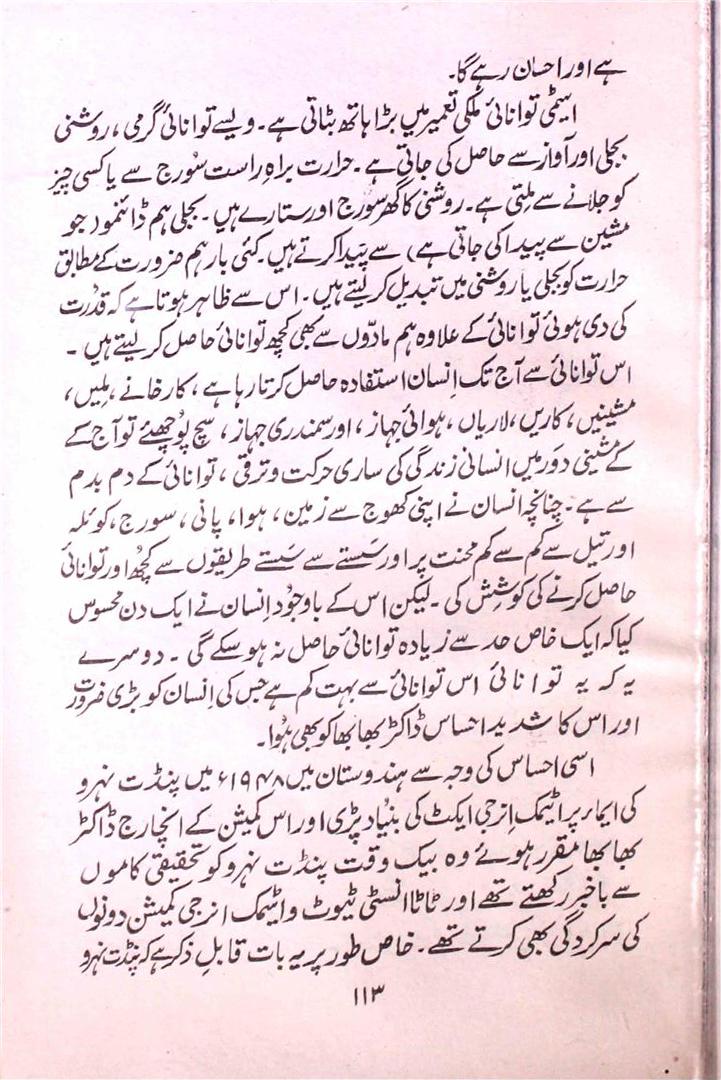 ہے اور احسان رہے گا۔
ایٹمی توانائی ملکی تعمیر میں بڑا ہاتھ بٹاتی ہے۔ ویسے توانائی گرمی، روشنی
بجلی اور آواز سے حاصل کی جاتی ہے۔ حرارت براہِ راست سُورج سے یا کسی چیز
کو جلانے سے ملتی ہے۔ روشنی کا گھر سورج اور ستارے ہیں۔ بجلی ہم ڈائنمو د جو
مشین سے پیدا کی جاتی ہے) سے پَیدا کرتے ہیں۔ کئی بار ہم ضرورت کے مطابق
حرارت کو بجلی یا روشنی میں تبدیل کر لیتے ہیں۔ اس سے ظاہر ہوتا ہے کہ قدُرت
کی دی ہوئی توانائی کے علاوہ ہم مادّوں سے بھی کچھ توانائی حاصل کر لیتے ہیں۔
اس توانائی سے آج تک اِنسان استفادہ حاصل کرتا رہا ہے، کارخانے، مِلیں،
مشینیں، کاریں، لاریاں، ہوائی جہاز، اور سمندری جہاز، سچ پوُچھئے تو آج کے
کے مشینی دَور میں انسانی زندگی کی ساری حرکت و ترقی، توانائی کے دم بدم
سے ہے۔ چنانچہ انسان نے اپنی کھوج سے زمین، ہوا، پانی، سورج، کوئلہ
اور تیل سے کم سے کم محنت پر اور سَستے سے سَستے طریقوں سے کچھُ اور توانائی
حاصل کرنے کی کوشِش کی۔ لیکن اس کے باوجوُد اِنسان نے ایک دن محسوس
کیا کہ ایک خاص حد سے زیادہ توانائی حاصل نہ ہو سکے گی۔ دوسرے
یہ کہ یہ توانائی اس توانائی سے بہت کم ہے جس کی اِنسان کو بڑی ضرورت
اور اس کا شدید احساس ڈاکڑ بھابھا کو بھی ہُوا۔
اسی احساس کی وجہ سے ہندوستان میں ۱۹۴۸ء میں پنڈت نہرو
کی ایماء پر اٹیمک اِنرجی ایکٹ کی بنُیاد پڑی اور اس کمیشن کے انچارج ڈاکٹر
بھابھا مقرر ہوئے وہ بیک وقت پنڈت نہرو کو تحقیقی کاموں
سے باخبر رکھتے تھے اور ٹاٹا انسٹی ٹیوٹ و اٹیمک انرجی کمیشن دونوں
کی سرکردگی بھی کرتے تھے۔ خاص طور پر یہ بات قابلِ ذکر ہے کہ پنڈت نہرو
۱۱۳